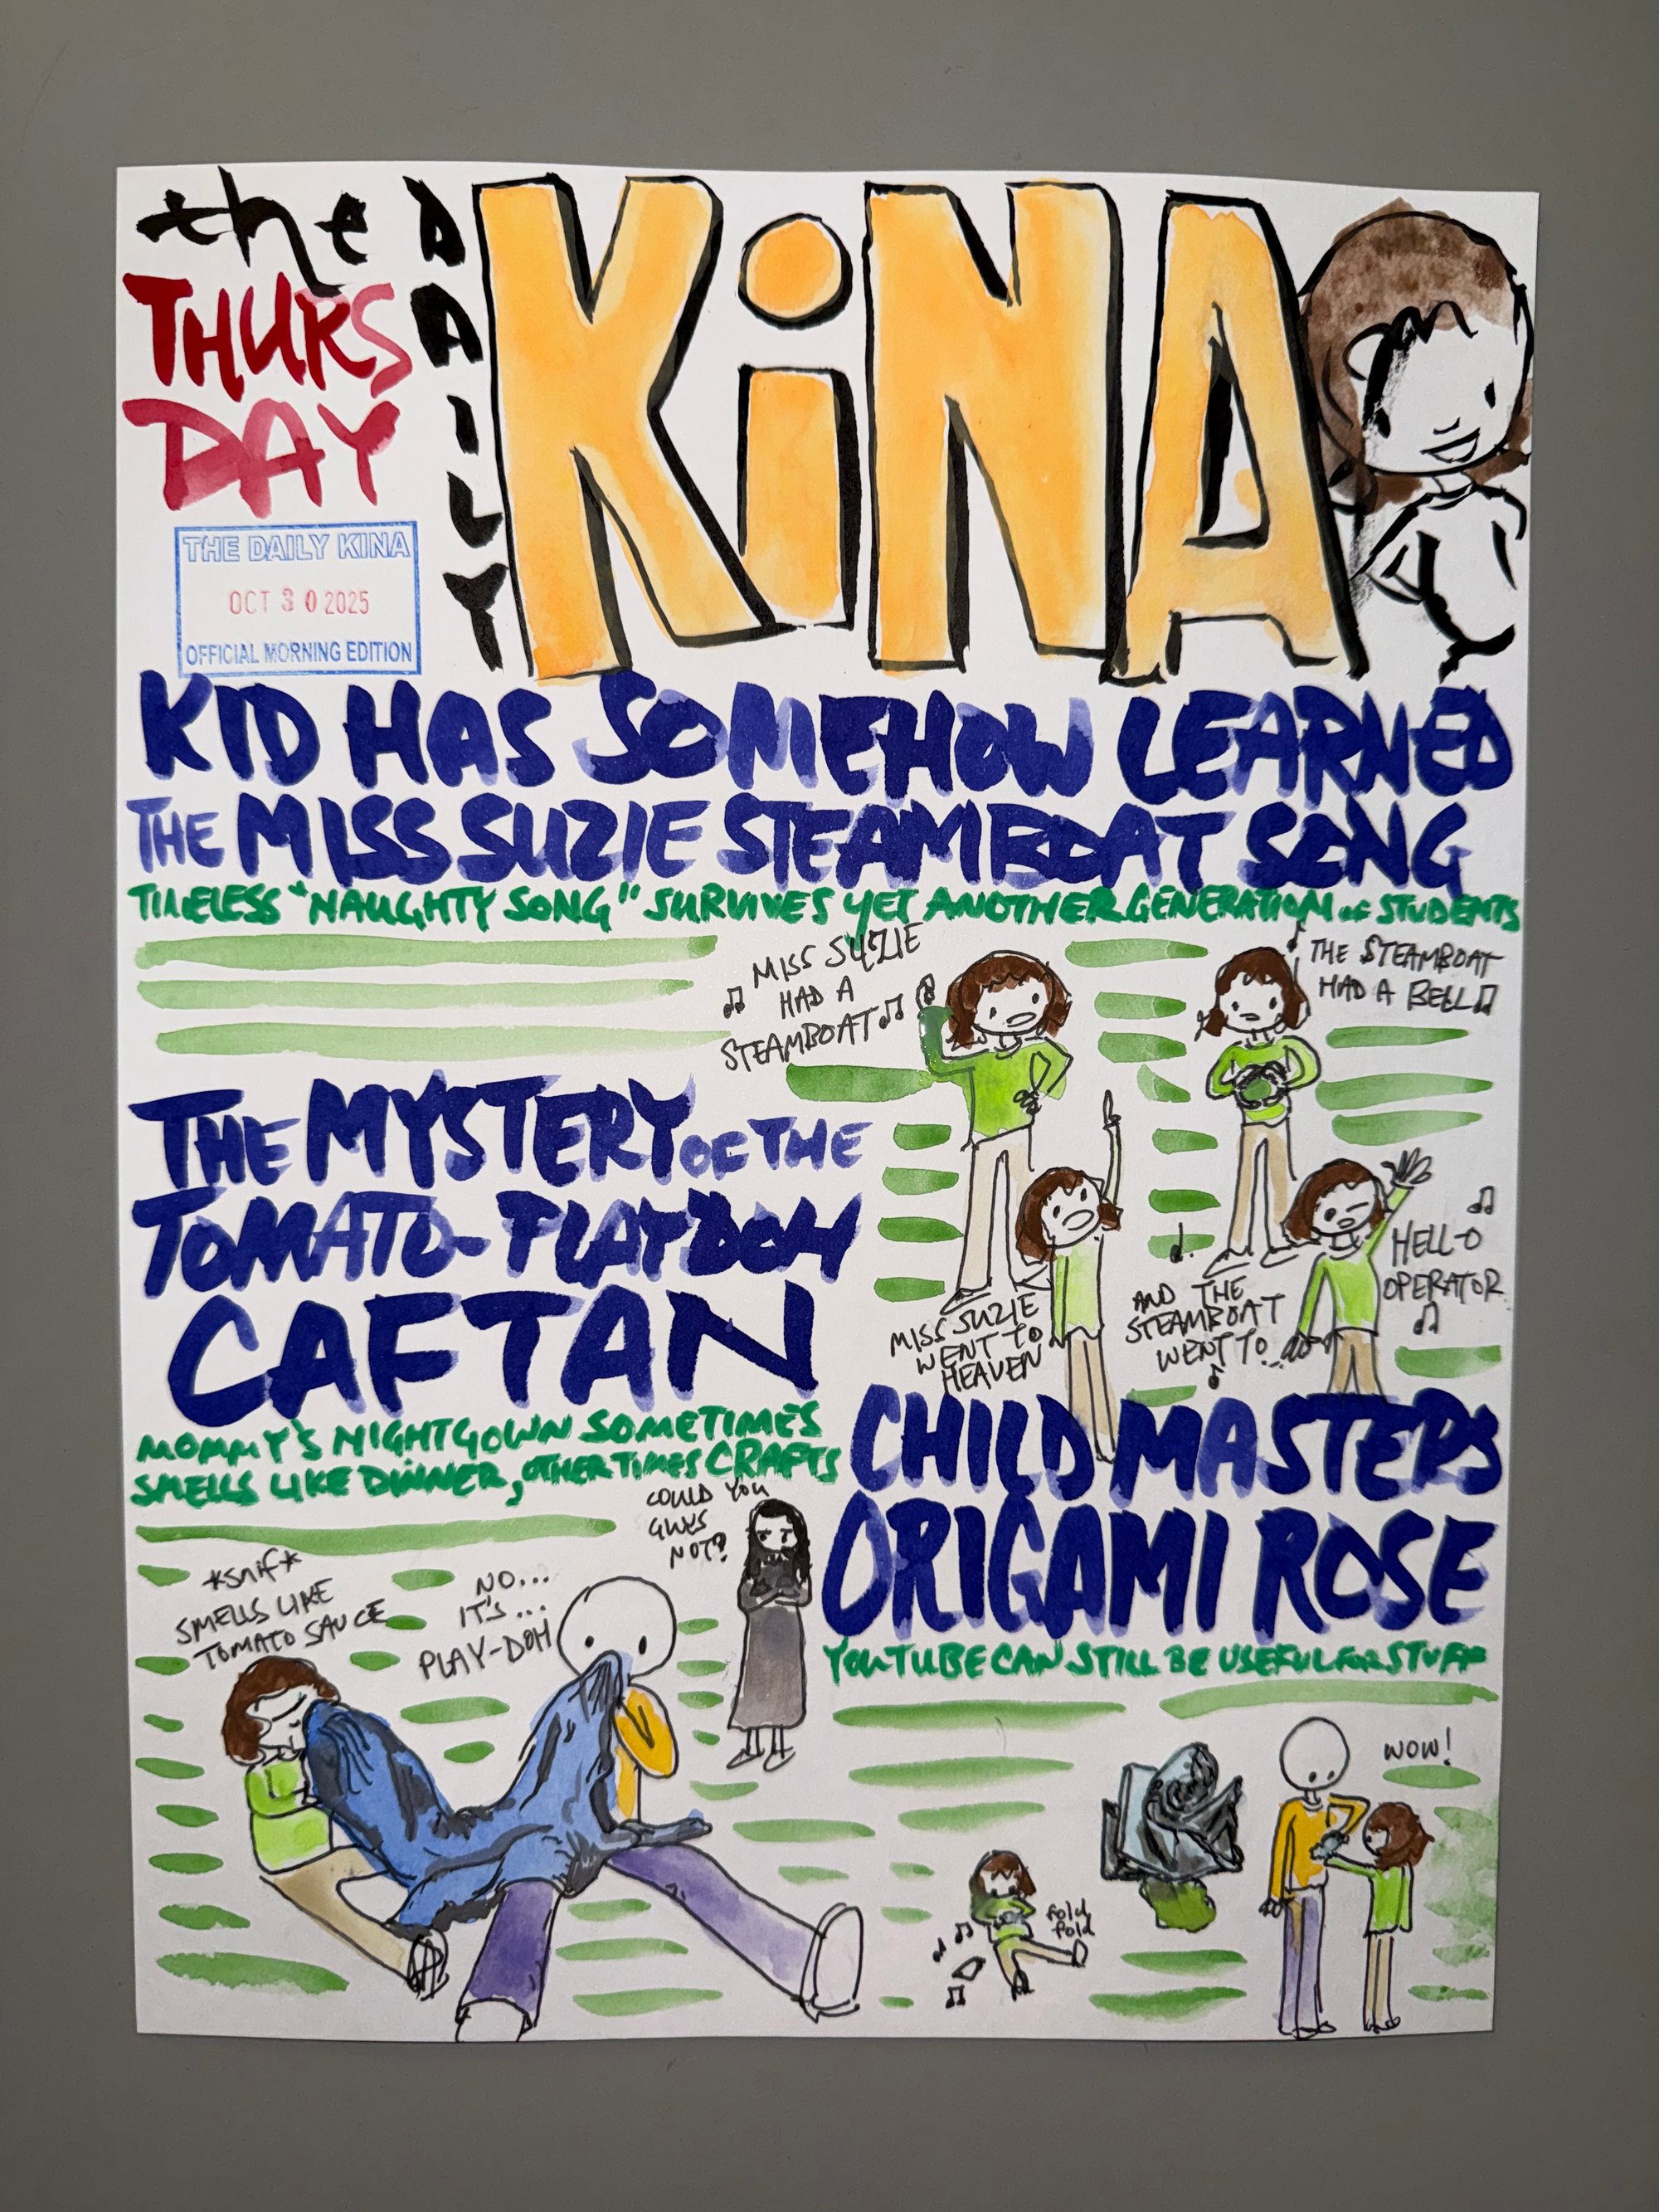 the
THURS
DAY
DAILY
KiNA
THE DAILY KINA
OCT 30 2025
OFFICIAL MORNING EDITION
KID HAS SOMEHOW LEARNED
THE MISS SUZIE STEAMBOAT SONG
TIMELESS "NAUGHTY SONG" SURVIVES YET ANOTHER GENERATION of STUDENTS
MISS SUZIE
HAD A
STEAMBOAT
THE STEAMBOAT
HAD A BELL
MISS SUZIE
WENT TO
HEAVEN
AND THE
STEAMBOAT
WENT TO...
HELL-O
OPERATOR
THE MYSTERY OF THE
TOMATO-PLAYDOH
CAFTAN
MOMMY'S NIGHTGOWN SOMETIMES
SMELLS LIKE DINNER, OTHER TIMES CRAFTS
COULD YOU
GUYS
NOT?
*snif*
SMELLS LIKE
TOMATO SAUCE
NO...
IT'S...
PLAY-DOH
CHILD MASTERS
ORIGAMI ROSE
YOUTUBE CAN STILL BE USEFUL FOR STUFF
fold
fold
WOW!